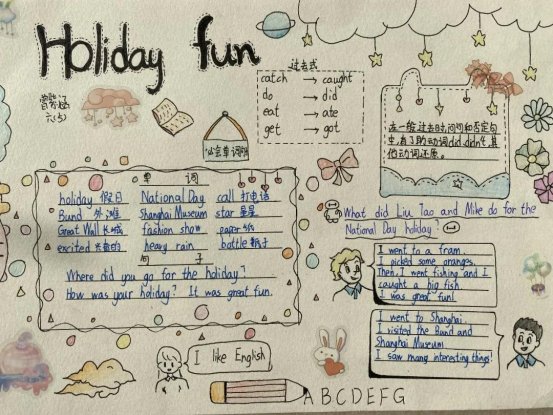 Holiday fun
过去式
catch → caught
do → did
eat → ate
get → got
六(5)
必会单词
在一般过去时问句和否定句
中,有了助动词did、didn't,其
他动词还原。
单 词
holiday 假日 National Day call 打电话
Bund 外滩 Shanghai Museum star 星星
Great Wall 长城 fashion show paper 纸
excited 兴奋的 heavy rain bottle 瓶子
句 子
Where did you go for the holiday?
How was your holiday? It was great fun.
What did Liu Tao and Mike do for the
National Day holiday?
I went to a fram
I picked some oranges.
Then, I went fishing and I
caught a big fish
I was great fun!
I went to Shanghai.
I visited the Bund and
Shanghai Museum
I saw many interesting things!
I like English
ABCDEFG